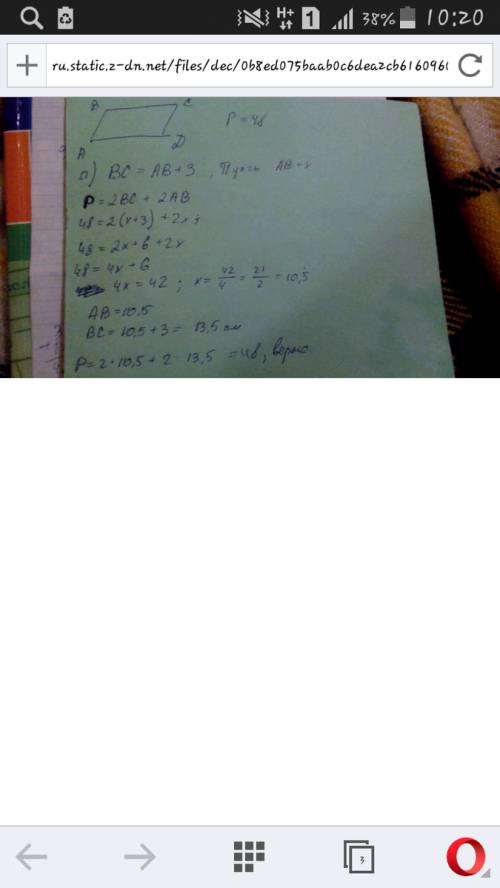 H+ 1 38% 10:20
ru.static.z-dn.net/files/dec/0b8ed075baab0c6dea2cb6160960
B C
P = 48
A D
а) BC = AB + 3, Пусть AB = x
P = 2BC + 2AB
48 = 2(x+3) + 2x;
48 = 2x + 6 + 2x
48 = 4x - 6
4x = 42; x = 42/4 = 21/2 = 10,5
AB = 10,5
BC = 10,5 + 3 = 13,5 см
P = 2 · 10,5 + 2 · 13,5 = 48, верно.
3